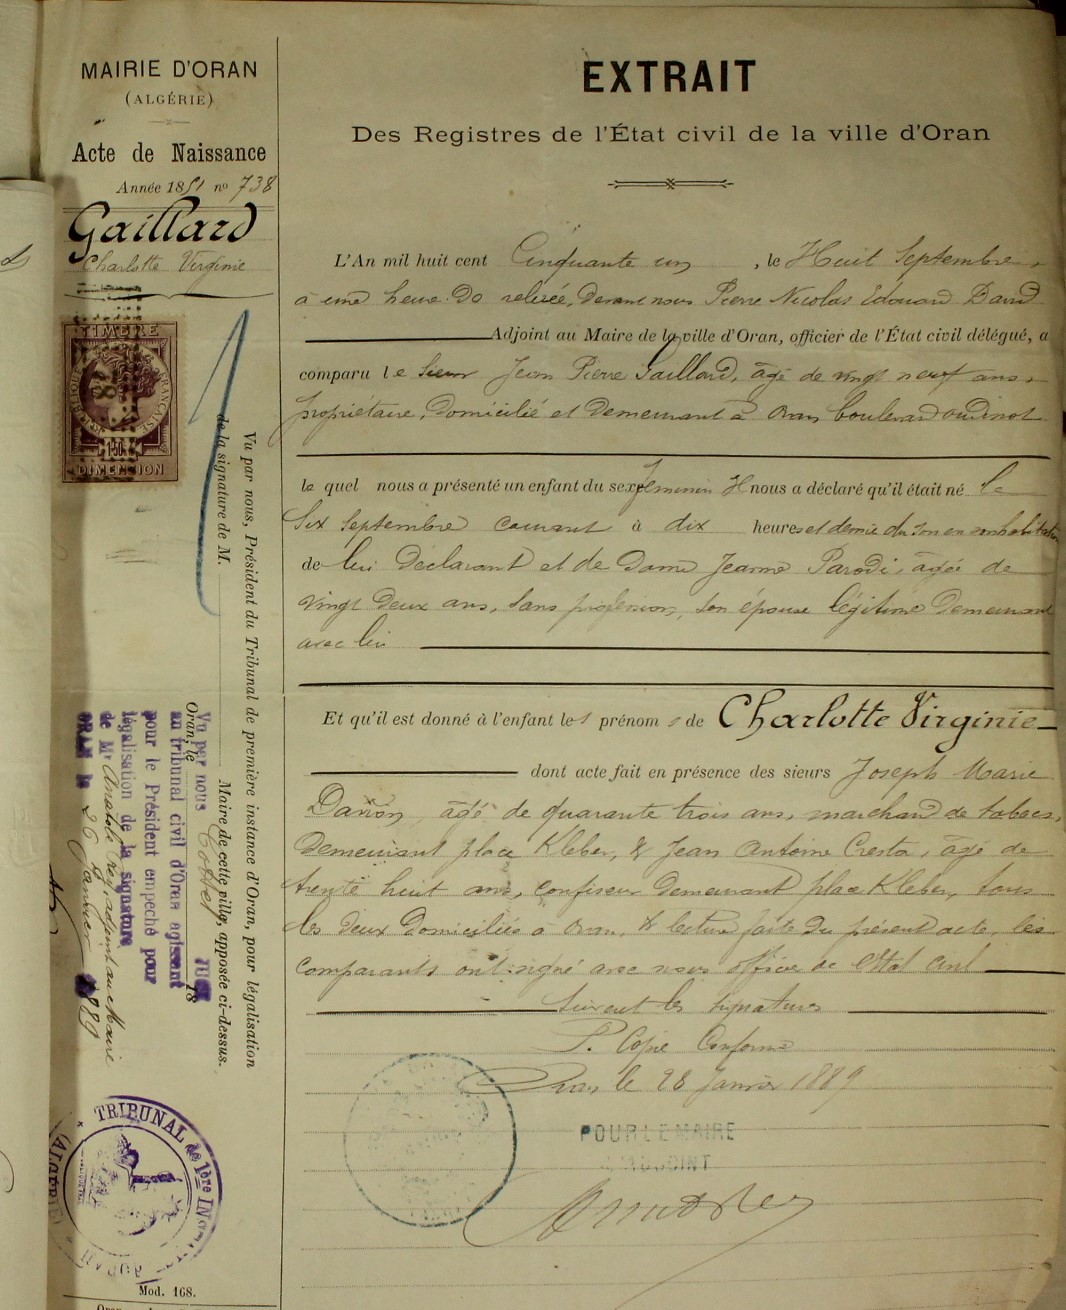 MAIRIE D'ORAN
(ALGÉRIE)
Acte de Naissance
Année 1851 nº 738
Gaillard
Charlotte Virginie
TIMBRE
RÉPUBLIQUE FRANÇAISE
1f50c
DIMENSION
Vu par nous, Président du Tribunal de première instance d'Oran, pour légalisation
de la signature de M. Maire de cette ville, apposée ci-dessus.
Oran, le 18
Vu par nous Cottel JUGE
au tribunal civil d'Oran agissant
pour le Président empeché pour
légalisation de la signature
de Mr Anatole Rey, adjoint au Maire
ORAN le 28 Janvier 1889
TRIBUNAL de 1ère INSTANCE
ORAN
(ALGÉRIE)
Mod. 168.
EXTRAIT
Des Registres de l'État civil de la ville d'Oran
L'An mil huit cent Cinquante un, le Huit Septembre,
à une heure de relevée, devant nous Pierre Nicolas Edouard David
Adjoint au Maire de la ville d'Oran, officier de l'État civil délégué, a
comparu le Sieur Jean Pierre Gaillard, âgé de vingt neuf ans,
propriétaire, domicilié et demeurant à Oran boulevard oudinot
le quel nous a présenté un enfant du sexe féminin & nous a déclaré qu'il était né le
Six Septembre courant à dix heures et demie du soir en cohabitation
de lui déclarant et de dame Jeanne Parodi, âgée de
vingt deux ans, sans profession, son épouse légitime demeurant
avec lui
Et qu'il est donné à l'enfant les prénoms de Charlotte Virginie
dont acte fait en présence des sieurs Joseph Marie
Danon, âgé de quarante trois ans, marchand de tabacs,
demeurant place Kleber, & Jean Antoine Cresta, âgé de
trente huit ans, confiseur demeurant place Kleber, tous
les deux domiciliés à Oran, & lecture faite du présent acte, les
comparants ont signé avec nous officier de l'Etat Civil
Suivent les signatures
P. Copie Conforme
Oran le 28 Janvier 1889
POUR LE MAIRE
L'ADJOINT